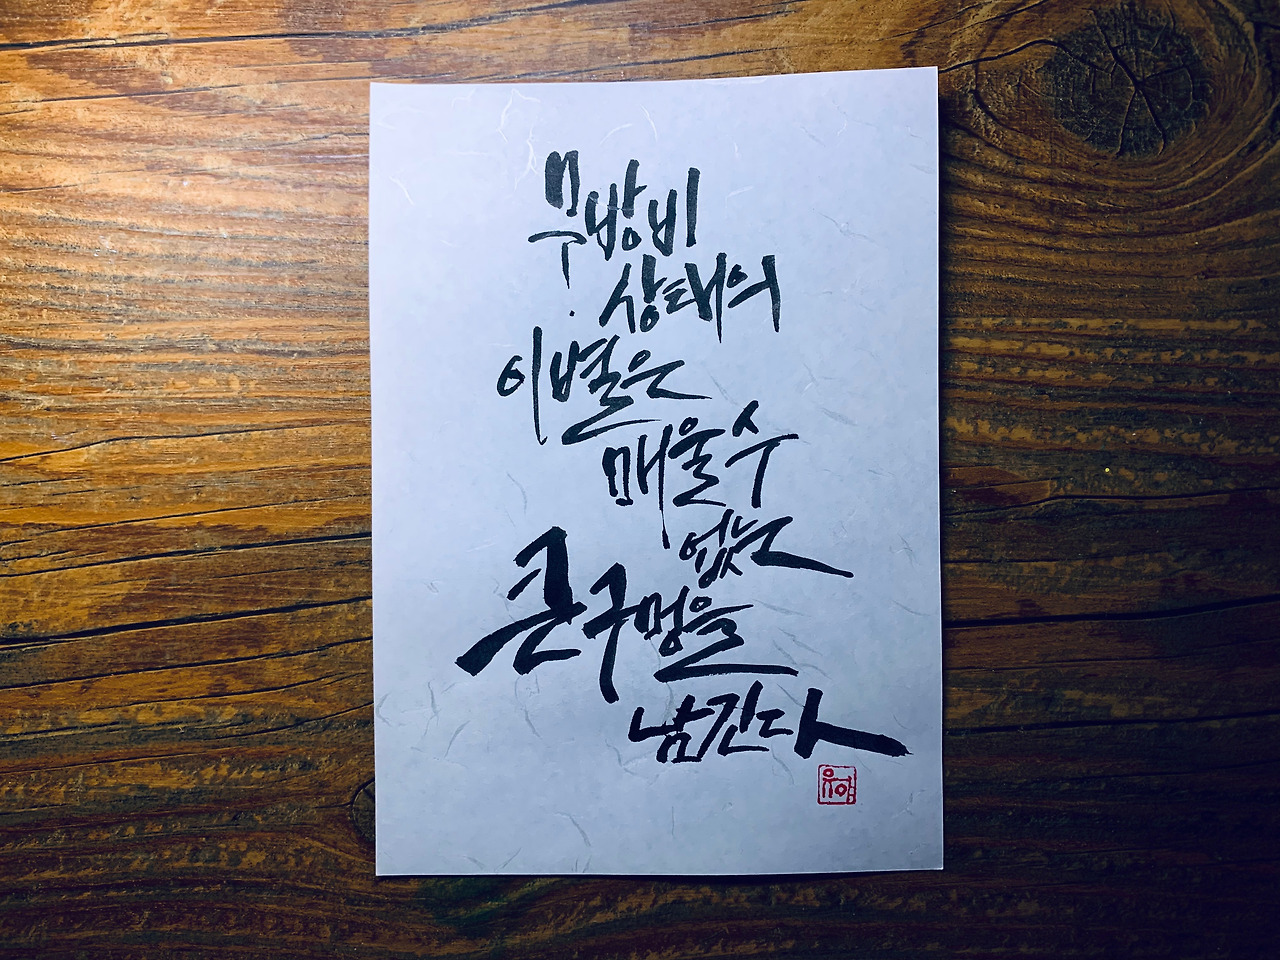 무방비
상태의
이별은
매울수
없는
큰구멍을
남긴다